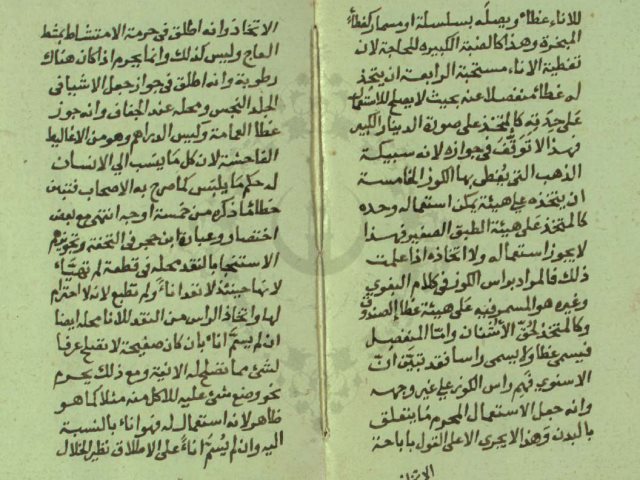 للاناء غطاء ويصله بسلسلة او مسمار كغطاء
المبخرة وهذا كالضبة الكبيرة للحاجة لان
تغطية الاناء مستحبة الرابعة ان يتخذ
له غطاء منفصلا عنه بحيث لا يصلح للاستعمال
على حدته كالمتخذ على صورة الدينار الكبير
فهذا لا توقف في جوازه لانه سبيكة
الذهب التي يغطى بها الكوز الخامسة
ان يتخذه على هيئة يمكن استعماله وحده
كالمتخذ على هيئة الطبق الصغير فهذا
لا يجوز استعماله ولا اتخاذه اذا علمت
ذلك فالمراد براس الكوز في كلام البغوي
وغيره هو المسمر فيه على هيئة غطا الصندوق
وكالمتخذ لحق الاشنان واما المنفصل
فيسمى غطا ولا يسمى راسا فقد تبين ان
الاسنوي فهم راس الكوز على غير وجهه
وانه جعل الاستعمال المحرم ما يتعلق
بالبدن وهذا لا يجري الا على القول باباحة
الاتخاذ
الاتخاذ وانه اطلق في حرمة الامتشاط بمشط
العاج وليس كذلك وانما يحرم اذا كان هناك
رطوبة وانه اطلق في جواز جعل الاشيا في
الجلد النجس ومحله عند الجفاف وانه جوز
غطا العمامة وليس الدراهم وهو من الاغاليط
الفاحشة لان كل ما ينسب الي الانسان
له حكم ما يلبس كما صرح به الاصحاب فتبين
خطا ما ذكره من خمسة اوجه انتهى مع بعض
اختصار وعبارة ابن حجر في التحفة وتجويزهم
الاستنجا بالنقد محله في قطعة لم تهيئا
لانها حينئذ لا تعد اناء ولم تطبع لانه لا احترام
لها واتخاذ الراس من النقد للانا محله ايضا
ان لم يسم اناء بان كان صفيحة لا تصلح عرفا
لشئ مما تصلح له الانية ومع ذلك يحرم
نحو وضع شئ عليه للاكل منه مثلا كما هو
ظاهر لانه استعمال له فهو اناء بالنسبة
اليه وان لم يسم اناء على الاطلاق نظير الخلال